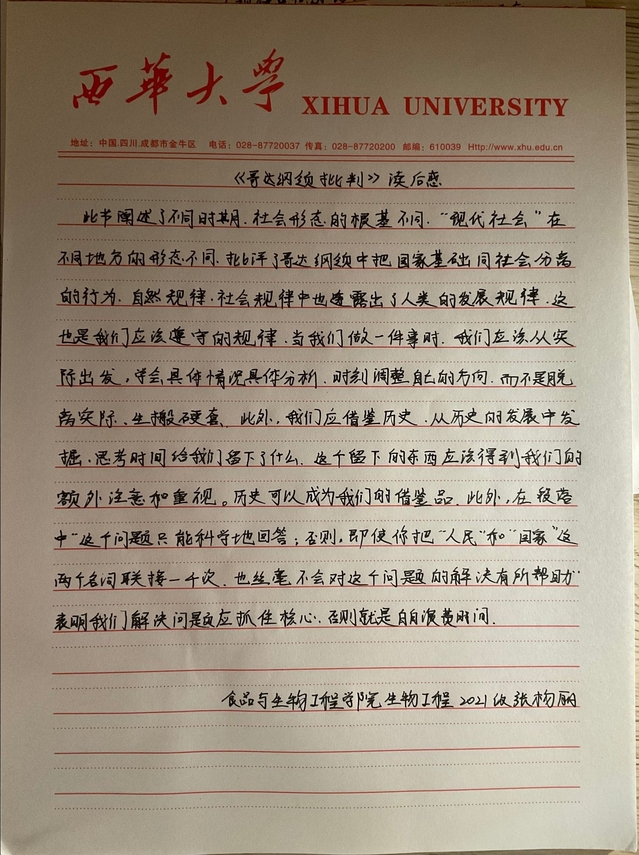 西華大學 XIHUA UNIVERSITY
地址：中国.四川.成都市金牛区 电话：028-87720037 传真：028-87720200 邮编：610039 Http://www.xhu.edu.cn
《哥达纲领批判》读后感
此节阐述了不同时期.社会形态的根基不同."现代社会"在
不同地方的形态不同.批评了哥达纲领中把国家基础同社会分离
的行为.自然规律.社会规律中也透露出了人类的发展规律.这
也是我们应该遵守的规律.当我们做一件事时.我们应该从实
际出发，学会具体情况具体分析.时刻调整自己的方向.而不是脱
离实际、生搬硬套、此外，我们应借鉴历史.从历史的发展中发
掘.思考时间给我们留下了什么.这个留下的东西应该得到我们的
额外注意和重视。历史可以成为我们的借鉴品.此外，在段落
中"这个问题只能科学地回答；否则，即使你把"人民"和"国家"这
两个名词联接一千次.也丝毫不会对这个问题的解决有所帮助"
表明我们解决问题应抓住核心.否则就是白白浪费时间.
食品与生物工程学院生物工程 2021级张杨丽